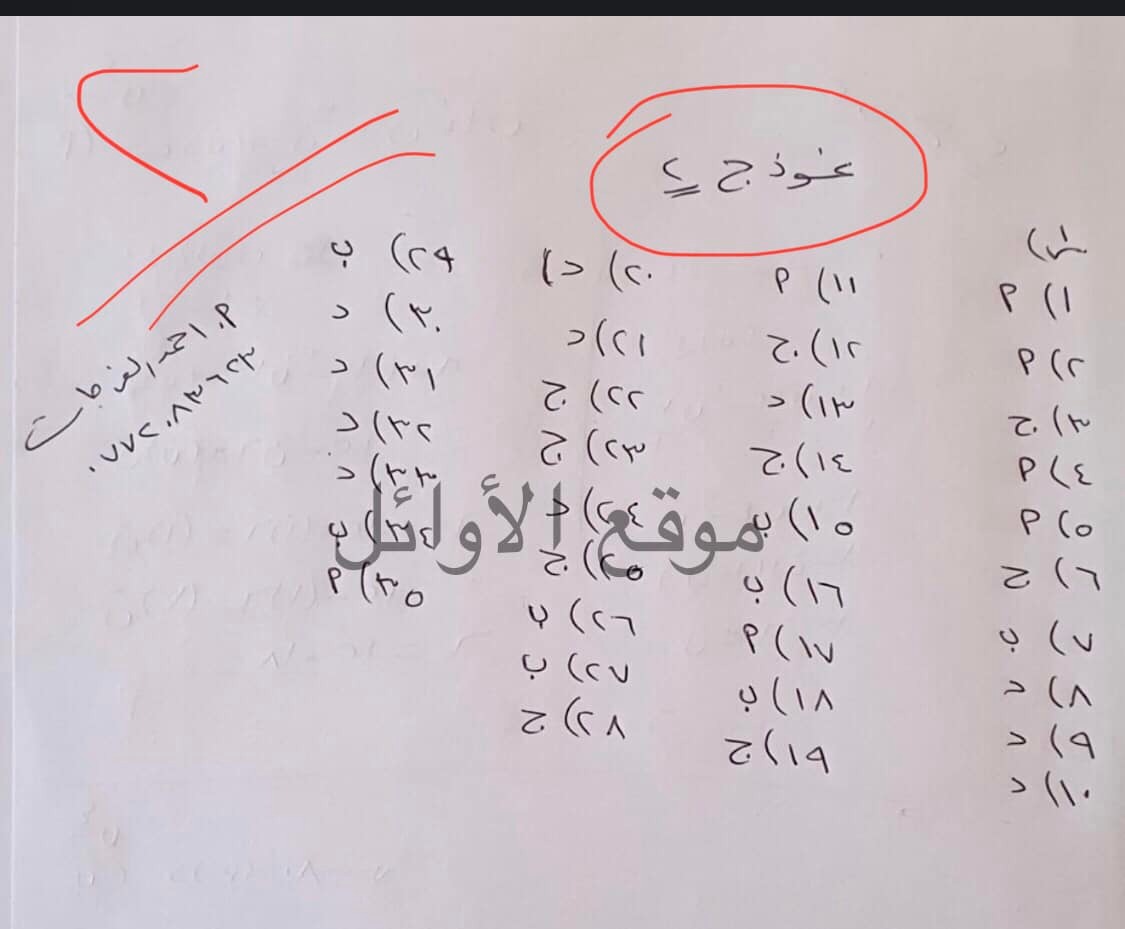 نموذج ٢
١) أ
٢) أ
٣) ج
٤) أ
٥) أ
٦) ج
٧) ب
٨) د
٩) د
١٠) د
١١) أ
١٢) ج
١٣) د
١٤) ج
١٥) ب
١٦) ب
١٧) أ
١٨) ب
١٩) ج
٢٠) د
٢١) د
٢٢) ج
٢٣) ج
٢٤) د
٢٥) ج
٢٦) ب
٢٧) ب
٢٨) ج
٢٩) ب
٣٠) د
٣١) د
٣٢) د
٣٣) د
٣٤) ب
٣٥) أ
أ. احمد
موقع الأوائل